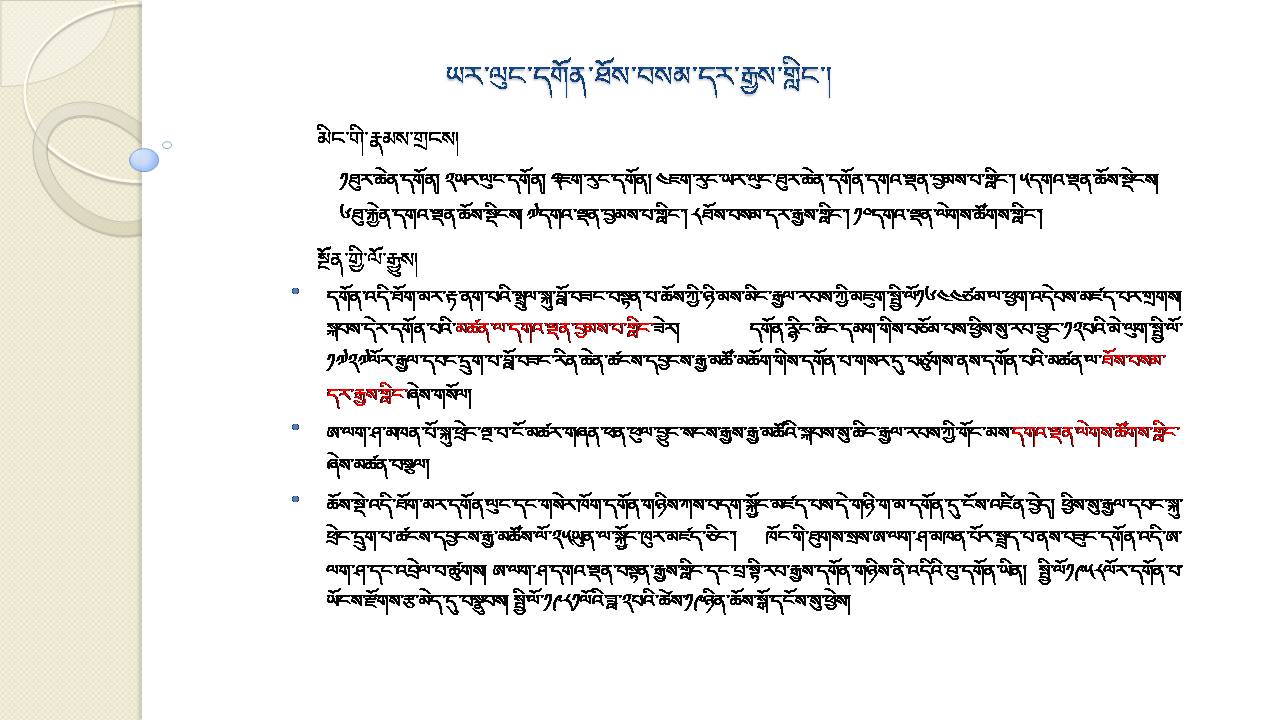 ཡར་ལུང་དགོན་ཐོས་བསམ་དར་རྒྱས་གླིང་།
མིང་གི་རྣམས་གྲངས།
༡ཐུར་ཆེན་དགོན། ༢ཡར་ལུང་དགོན། ༣ཇག་རུང་དགོན། ༤ཇག་རུང་ཡར་ལུང་ཐུར་ཆེན་དགོན་དགའ་ལྡན་བྱམས་པ་གླིང་། ༥དགའ་ལྡན་ཆོས་སྡིངས།
༦ཐུ་རྐྱེན་དགའ་ལྡན་ཆོས་སྡིངས། ༧དགའ་ལྡན་བྱམས་པ་གླིང་། ༨ཐོས་བསམ་དར་རྒྱས་གླིང་། ༡༠དགའ་ལྡན་ལེགས་ཚོགས་གླིང་།
སྔོན་གྱི་ལོ་རྒྱུས།
དགོན་འདི་ཐོག་མར་རྟ་ནག་པའི་སྤྲུལ་སྐུ་བློ་བཟང་བསྟན་པ་ཆོས་ཀྱི་ཉི་མས་མིང་རྒྱལ་རབས་ཀྱི་མཇུག་སྤྱི་ལོ༡༦༤༤ཙམ་ལ་ཕྱག་འདེབས་མཛད་པར་གྲགས།
སྐབས་དེར་དགོན་པའི་མཚན་ལ་དགའ་ལྡན་བྱམས་པ་གླིང་ཟེར། དགོན་རྙིང་ཆིང་དམག་གིས་བཅོམ་པས་ཕྱིས་སུ་རབ་བྱུང་༡༢པའི་མེ་ལུག་སྤྱི་ལོ་
༡༧༢༧ལོར་རྒྱལ་དབང་དྲུག་པ་བློ་བཟང་རིན་ཆེན་ཚངས་དབྱངས་རྒྱ་མཚོ་མཆོག་གིས་དགོན་པ་གསར་དུ་བཙུགས་ནས་དགོན་པའི་མཚན་ལ་ཐོས་བསམ་
དར་རྒྱས་གླིང་ཞེས་གསོལ།
ཨ་ལག་ཤ་མཁན་པོ་སྐུ་ཕྲེང་ལྔ་བ་ངོ་མཚར་གཞན་ཕན་ཕུལ་བྱུང་སངས་རྒྱས་རྒྱ་མཚོའི་སྐབས་སུ་ཆིང་རྒྱལ་རབས་ཀྱི་གོང་མས་དགའ་ལྡན་ལེགས་ཚོགས་གླིང་
ཞེས་མཚན་བསྩལ།
ཆོས་སྡེ་འདི་ཐོག་མར་དགོན་ལུང་དང་གསེར་ཁོག་དགོན་གཉིས་ཀས་བདག་སྐྱོང་མཛད་པས་དེ་གཉི་ག་མ་དགོན་དུ་ངོས་འཛིན་བྱེད། ཕྱིས་སུ་རྒྱལ་དབང་སྐུ་
ཕྲེང་དྲུག་པ་ཚངས་དབྱངས་རྒྱ་མཚོས་ལོ་༢༥ཡུན་ལ་སྐྱོང་ཁུར་མཛད་ཅིང་། ཁོང་གི་ཐུགས་སྲས་ཨ་ལག་ཤ་མཁན་པོར་སྤྲད་པ་ནས་བཟུང་དགོན་འདི་ཨ་
ལག་ཤ་དང་འབྲེལ་བ་ཚུགས། ཨ་ལག་ཤ་དགའ་ལྡན་བསྟན་རྒྱས་གླིང་དང་པྲ་སྟི་རབ་རྒྱས་དགོན་གཉིས་ནི་འདིའི་བུ་དགོན་ཡིན། སྤྱི་ལོ༡༩༥༨ལོར་དགོན་པ་
ཡོངས་རྫོགས་རྩ་མེད་དུ་བསྣུབས། སྤྱི་ལོ་༡༩༨༡ལོའི་ཟླ་༢པའི་ཚེས་༡༩ཉིན་ཆོས་སྒོ་དངོས་སུ་ཕྱེས།